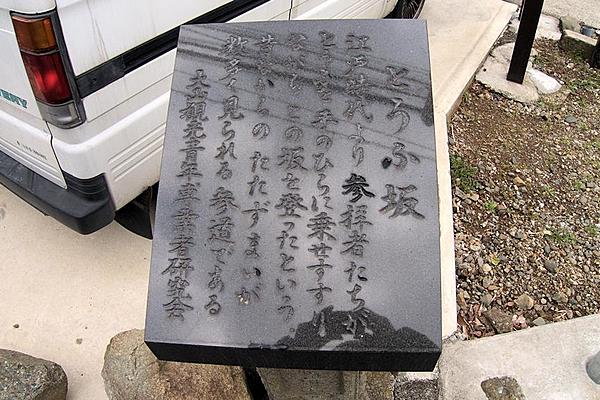 とうふ坂
江戸時代より 参拝者たちが
とうふを手のひらに乗せすすり
ながら この坂を登ったという
昔ながらの たたずまいが
数多く見られる 参道である
大山観光青年専業者研究会